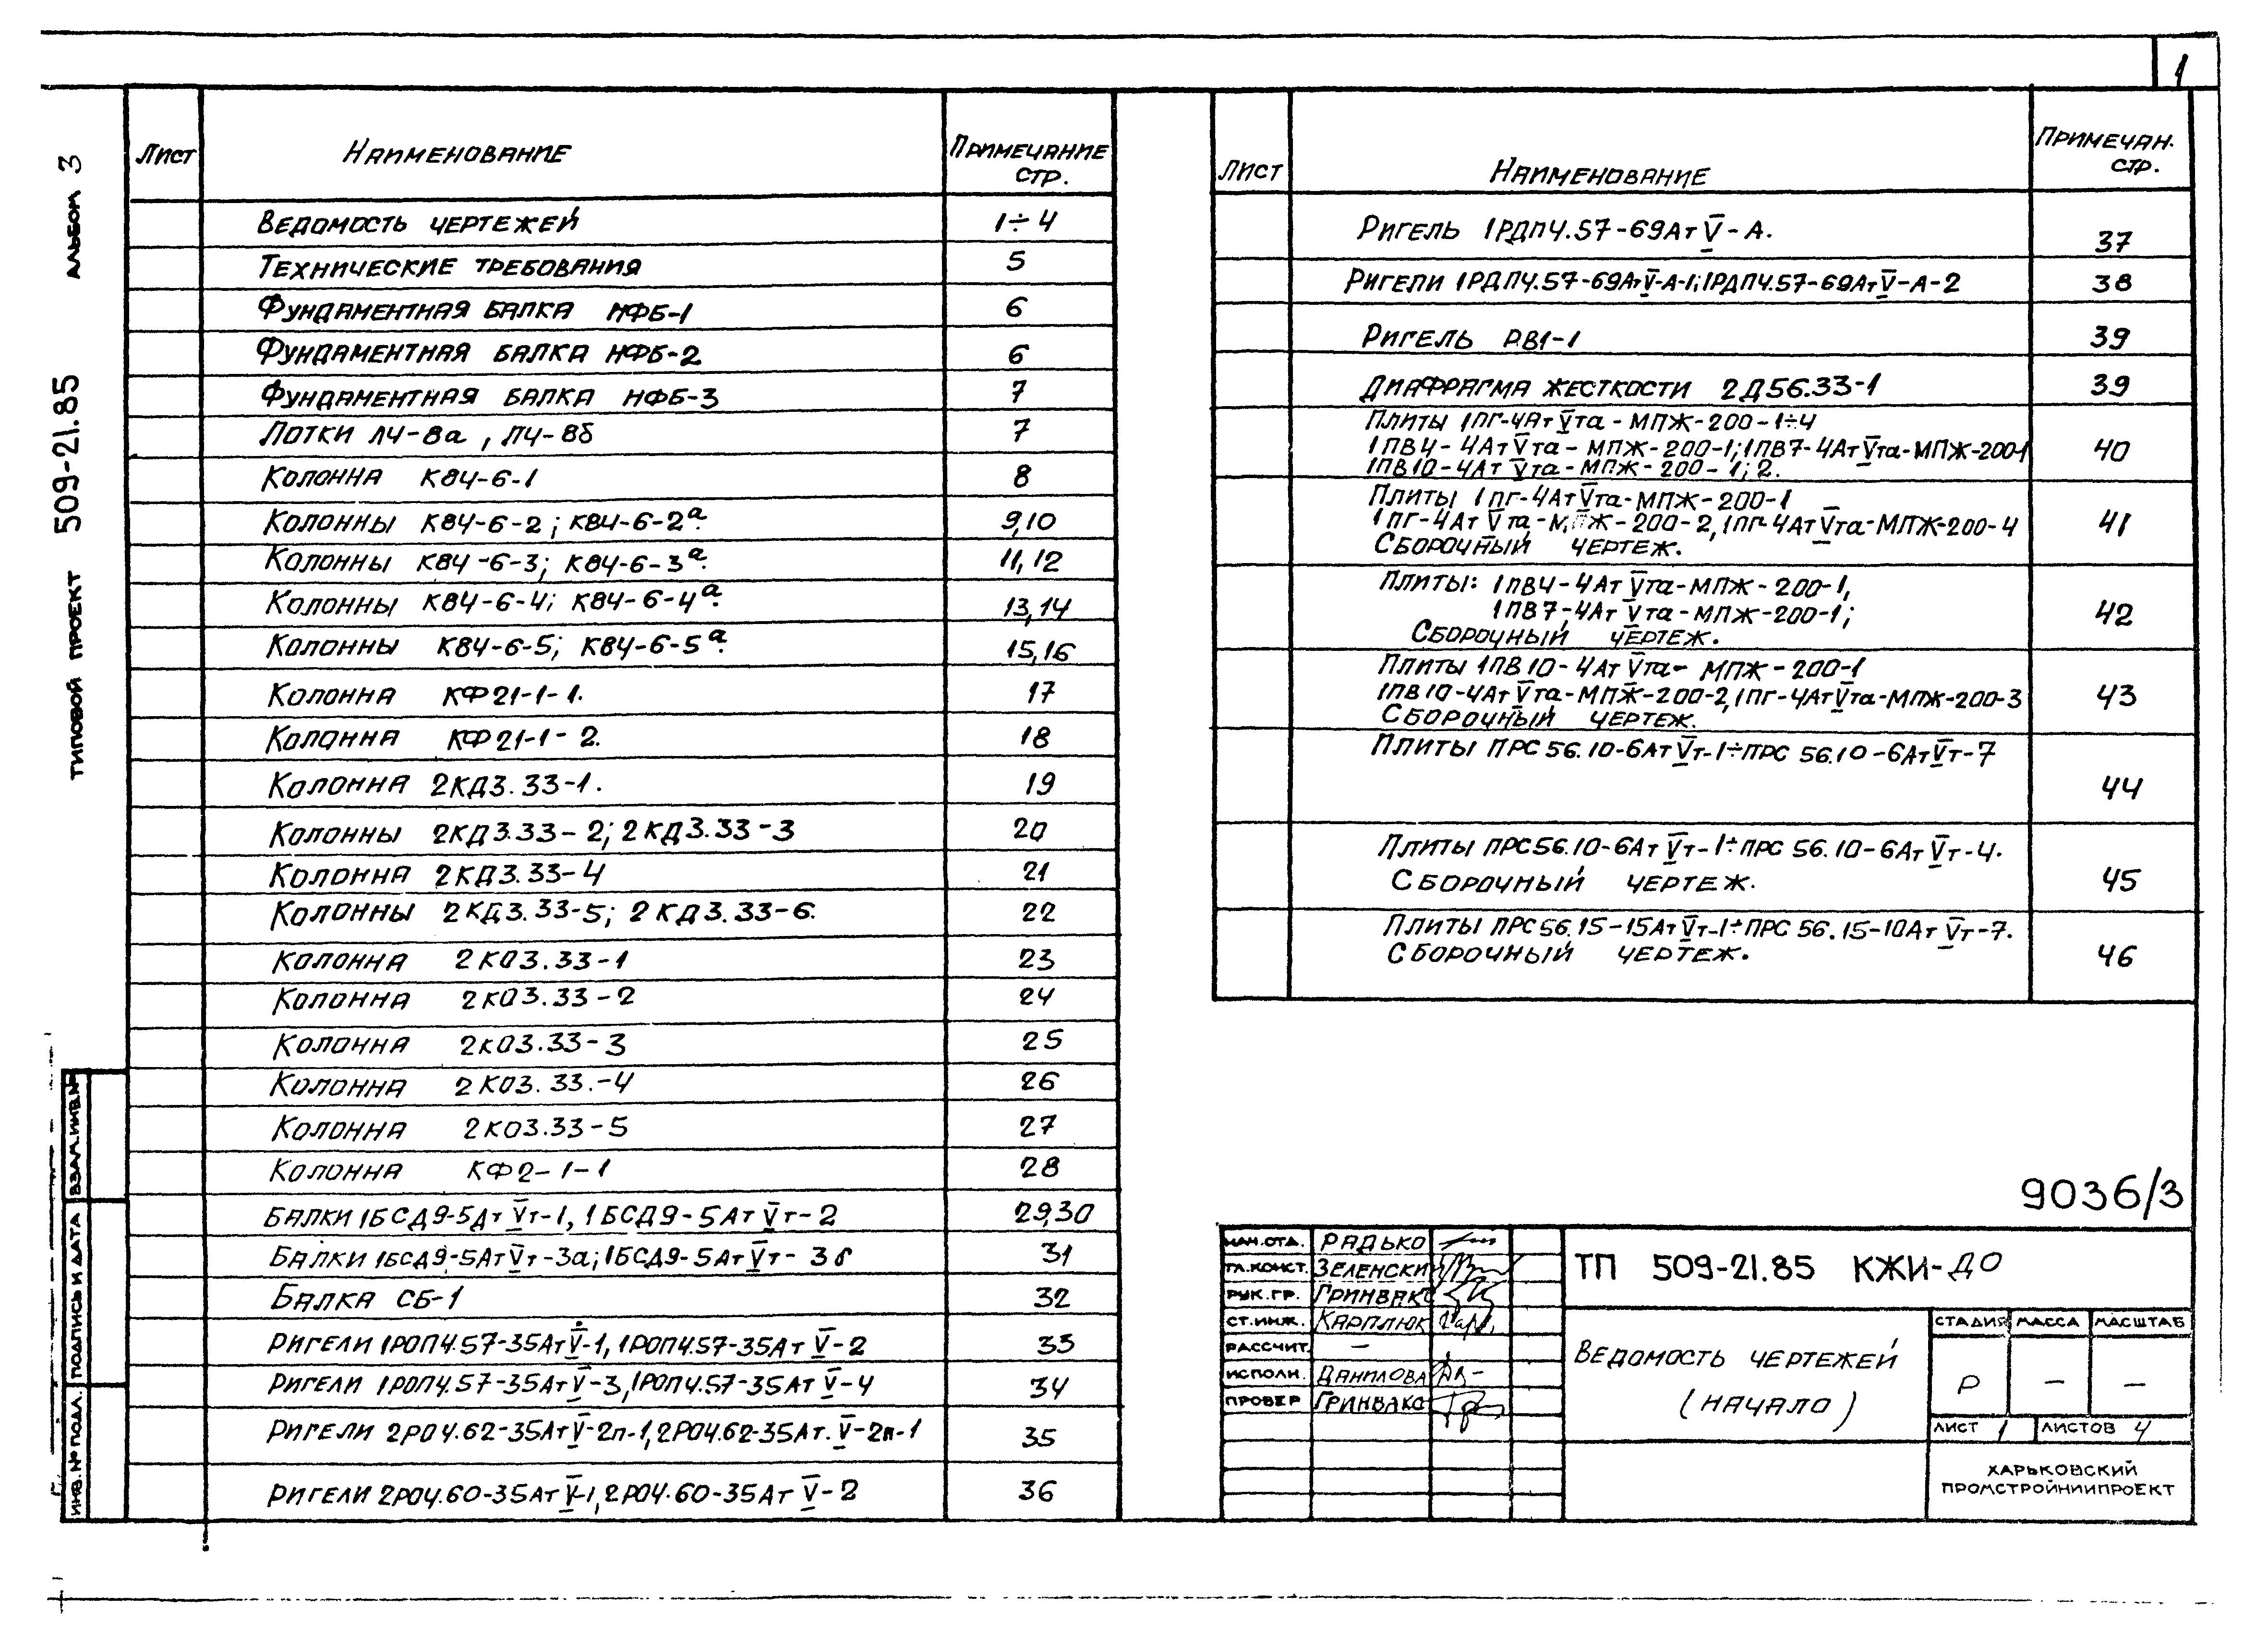 1
АЛЬБОМ 3
ТИПОВОЙ ПРОЕКТ 509-21.85
ВЗАМ.ИНВ.№
ПОДПИСЬ И ДАТА
ИНВ.№ ПОДЛ.
Лист Наименование Примечание стр.
Ведомость чертежей 1÷4
Технические требования 5
Фундаментная балка НФБ-1 6
Фундаментная балка НФБ-2 6
Фундаментная балка НФБ-3 7
Лотки Л4-8а, Л4-8б 7
Колонна К84-6-1 8
Колонны К84-6-2; К84-6-2а. 9,10
Колонны К84-6-3; К84-6-3а. 11,12
Колонны К84-6-4; К84-6-4а. 13,14
Колонны К84-6-5; К84-6-5а. 15,16
Колонна КФ21-1-1. 17
Колонна КФ21-1-2. 18
Колонна 2КД3.33-1. 19
Колонны 2КД3.33-2; 2КД3.33-3 20
Колонна 2КД3.33-4 21
Колонны 2КД3.33-5; 2КД3.33-6. 22
Колонна 2КО3.33-1 23
Колонна 2КО3.33-2 24
Колонна 2КО3.33-3 25
Колонна 2КО3.33.-4 26
Колонна 2КО3.33-5 27
Колонна КФ2-1-1 28
Балки 1БСД9-5Ат V т-1, 1БСД9-5Ат V т-2 29,30
Балки 1БСД9-5Ат V т-3а; 1БСД9-5Ат V т-3б 31
Балка СБ-1 32
Ригели 1РОП4.57-35Ат V-1, 1РОП4.57-35Ат V-2 33
Ригели 1РОП4.57-35Ат V-3, 1РОП4.57-35Ат V-4 34
Ригели 2РО4.62-35Ат V-2п-1, 2РО4.62-35Ат. V-2п-1 35
Ригели 2РО4.60-35Ат V-1, 2РО4.60-35Ат V-2 36
Лист Наименование Примечан. стр.
Ригель 1РДП4.57-69Ат V-А. 37
Ригели 1РДП4.57-69Ат V-А-1; 1РДП4.57-69Ат V-А-2 38
Ригель РВ1-1 39
Диафрагма жесткости 2Д56.33-1 39
Плиты 1ПГ-4Ат V та-МПЖ-200-1÷4
1ПВ4-4Ат V та-МПЖ-200-1; 1ПВ7-4Ат V та-МПЖ-200-1 40
1ПВ10-4Ат V та-МПЖ-200-1; 2.
Плиты 1ПГ-4Ат V та-МПЖ-200-1
1ПГ-4Ат V та-МПЖ-200-2, 1ПГ-4Ат V та-МПЖ-200-4 41
Сборочный чертеж.
Плиты: 1ПВ4-4Ат V та-МПЖ-200-1,
1ПВ7-4Ат V та-МПЖ-200-1; 42
Сборочный чертеж.
Плиты 1ПВ10-4Ат V та-МПЖ-200-1
1ПВ10-4Ат V та-МПЖ-200-2, 1ПГ-4Ат V та-МПЖ-200-3 43
Сборочный чертеж.
Плиты ПРС56.10-6Ат V т-1÷ПРС 56.10-6Ат V т-7
44
Плиты ПРС56.10-6Ат V т-1÷ПРС 56.10-6Ат V т-4.
Сборочный чертеж. 45
Плиты ПРС56.15-15Ат V т-1÷ПРС 56.15-10Ат V т-7.
Сборочный чертеж. 46
9036/3
НАЧ.ОТД. РАДЬКО
ГЛ.КОНСТ. ЗЕЛЕНСКИ
РУК.ГР. ГРИНВАКС
СТ.ИНЖ. КАРПЛЮК
РАССЧИТ. —
ИСПОЛН. ДАНИЛОВА
ПРОВЕР ГРИНВАКС
ТП 509-21.85 КЖИ-ДО
Ведомость чертежей
(начало)
СТАДИЯ МАССА МАСШТАБ
Р — —
ЛИСТ 1 ЛИСТОВ 4
ХАРЬКОВСКИЙ
ПРОМСТРОЙНИИПРОЕКТ